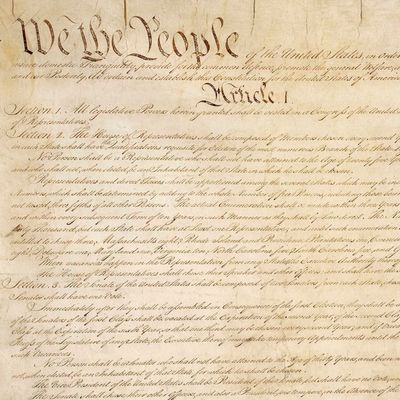 We the People of the United States, in Order
insure domestic Tranquility, provide for the common defence, promote the general Welfare,
and our Posterity, do ordain and establish this Constitution for the United States of America
Article. I.
Section. 1. All legislative Powers herein granted shall be vested in a Congress of the United
of Representatives.
Section. 2. The House of Representatives shall be composed of Members chosen every second Y
in each State shall have the Qualifications requisite for Electors of the most numerous Branch of the State
No Person shall be a Representative who shall not have attained to the Age of twenty five Y
and who shall not, when elected, be an Inhabitant of that State in which he shall be chosen.
Representatives and direct Taxes shall be apportioned among the several States which may be in
Numbers, which shall be determined by adding to the whole Number of free Persons, including those
not taxed, three fifths of all other Persons. The actual Enumeration shall be made within three Years
and within every subsequent Term of ten Years, in such Manner as they shall by Law direct. The N
thirty Thousand, but each State shall have at Least one Representative; and until such enumeration
entitled to chuse three, Massachusetts eight, Rhode Island and Providence Plantations one, Connecticut
eight, Delaware one, Maryland six, Virginia ten, North Carolina five, South Carolina five, and
When vacancies happen in the Representation from any State, the Executive Authority thereof
The House of Representatives shall chuse their Speaker and other Officers; and shall have the
Section. 3. The Senate of the United States shall be composed of two Senators from each State,
Senator shall have one Vote.
Immediately after they shall be assembled in Consequence of the first Election, they shall be
of the Senators of the first Class shall be vacated at the Expiration of the second Year, of the second Cla
Class at the Expiration of the sixth Year, so that one third may be chosen every second Year; and if
Recess of the Legislature of any State, the Executive thereof may make temporary Appointments until the
such Vacancies.
No Person shall be a Senator who shall not have attained to the Age of thirty Years, and been
not, when elected, be an Inhabitant of that State for which he shall be chosen.
The Vice President of the United States shall be President of the Senate, but shall have no Vote, un
The Senate shall chuse their other Officers, and also a President pro tempore, in the Absence of the